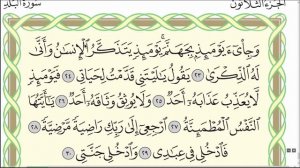 الجزء الثلاثون
سورة البلد
وَجِاْيٓءَ يَوْمَئِذٍۭ بِجَهَنَّمَ ۚ يَوْمَئِذٍ يَتَذَكَّرُ ٱلْإِنسَٰنُ وَأَنَّىٰ
لَهُ ٱلذِّكْرَىٰ ٢٣ يَقُولُ يَٰلَيْتَنِى قَدَّمْتُ لِحَيَاتِى ٢٤ فَيَوْمَئِذٍ
لَّا يُعَذِّبُ عَذَابَهُۥٓ أَحَدٌ ٢٥ وَلَا يُوثِقُ وَثَاقَهُۥٓ أَحَدٌ ٢٦ يَٰٓأَيَّتُهَا
ٱلنَّفْسُ ٱلْمُطْمَئِنَّةُ ٢٧ ٱرْجِعِىٓ إِلَىٰ رَبِّكِ رَاضِيَةً مَّرْضِيَّةً ٢٨
فَٱدْخُلِى فِى عِبَٰدِى ٢٩ وَٱدْخُلِى جَنَّتِى ٣٠